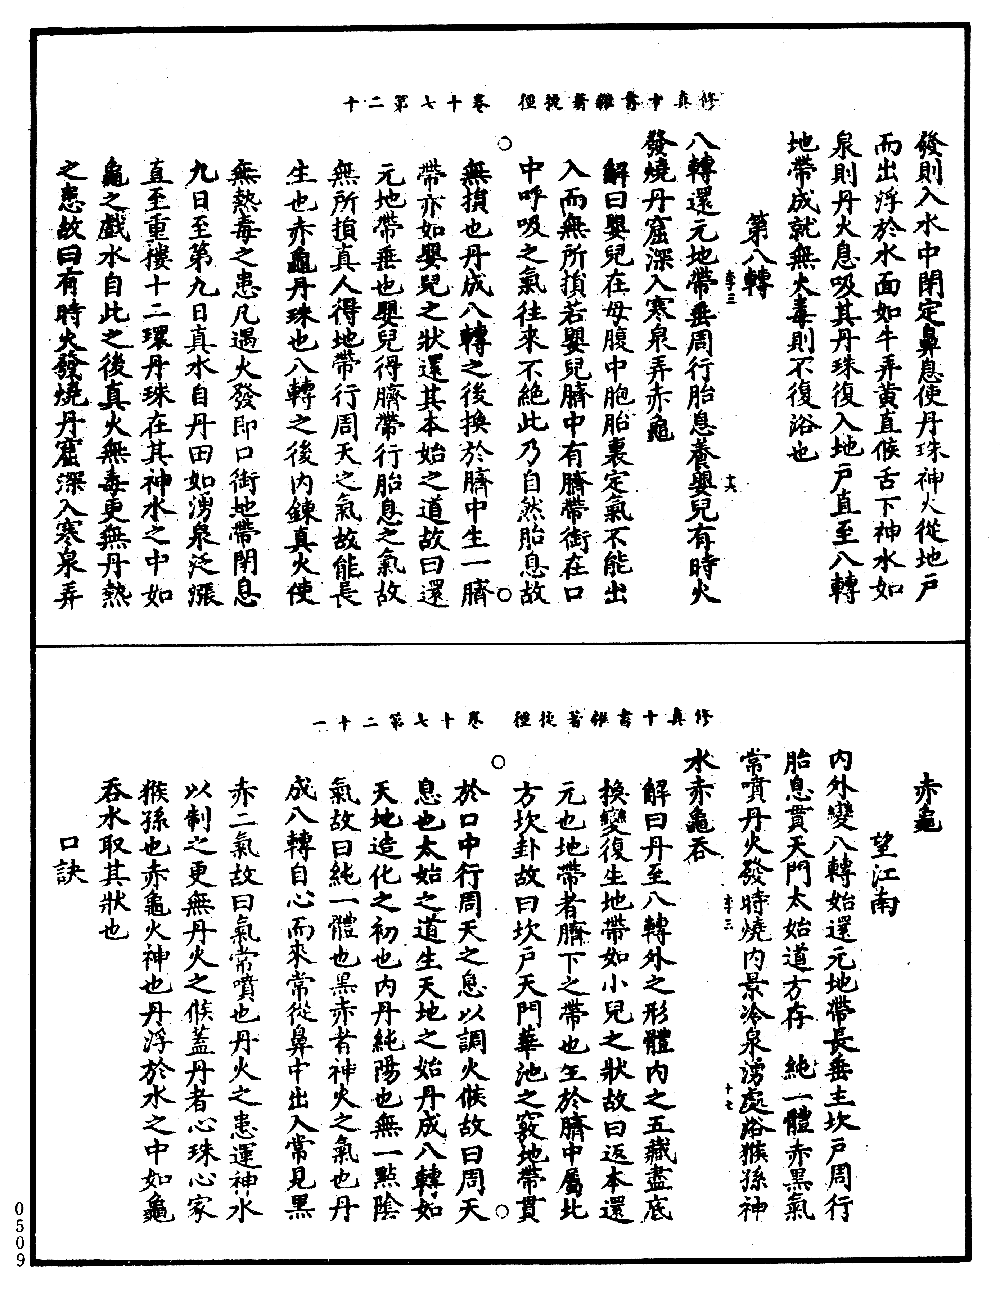 發則入水中閉定鼻息使丹珠神火從地戶
而出浮於水面如牛弄黃直候舌下神水如
泉則丹火息吸其丹珠復入地戶直至八轉
地帶成就無火毒則不復浴也
第八轉
八轉還元地帶垂周行胎息養嬰兒有時火
發燒丹窟深入寒泉弄赤龜
解曰嬰兒在母腹中胞胎裹定氣不能出
入而無所損若嬰兒臍中有臍帶銜在口
中呼吸之氣往來不絕此乃自然胎息故
無損也丹成八轉之後換於臍中生一臍
帶亦如嬰兒之狀還其本始之道故曰還
元地帶垂也嬰兒得臍帶行胎息之氣故
無所損真人得地帶行周天之氣故能長
生也赤龜丹珠也八轉之後內鍊真火使
無熱毒之患凡遇火發即口銜地帶閉息
九日至第九日真水自丹田如湧泉泛漲
直至重樓十二環丹珠在其神水之中如
龜之戲水自此之後真火無毒更無丹熱
之患故曰有時火發燒丹窟深入寒泉弄
修真十書雜著捷徑　卷十七第二十
赤龜
望江南
內外變八轉始還元地帶長垂主坎戶周行
胎息貫天門太始道方存　純一體赤黑氣
常噴丹火發時燒內景冷泉湧處浴猴孫神
水赤龜吞
解曰丹至八轉外之形體內之五藏盡底
換變復生地帶如小兒之狀故曰返本還
元也地帶者臍下之帶也生於臍中屬北
方坎卦故曰坎戶天門華池之竅地帶貫
於口中行周天之息以調火候故曰周天
息也太始之道生天地之始丹成八轉如
天地造化之初也內丹純陽也無一點陰
氣故曰純一體也黑赤者神火之氣也丹
成八轉自心而來常從鼻中出入常見黑
赤二氣故曰氣常噴也丹火之患運神水
以制之更無丹火之候蓋丹者心珠心家
猴孫也赤龜火神也丹浮於水之中如龜
吞水取其狀也
口訣
修真十書雜著捷徑　卷十七第二十一
0509